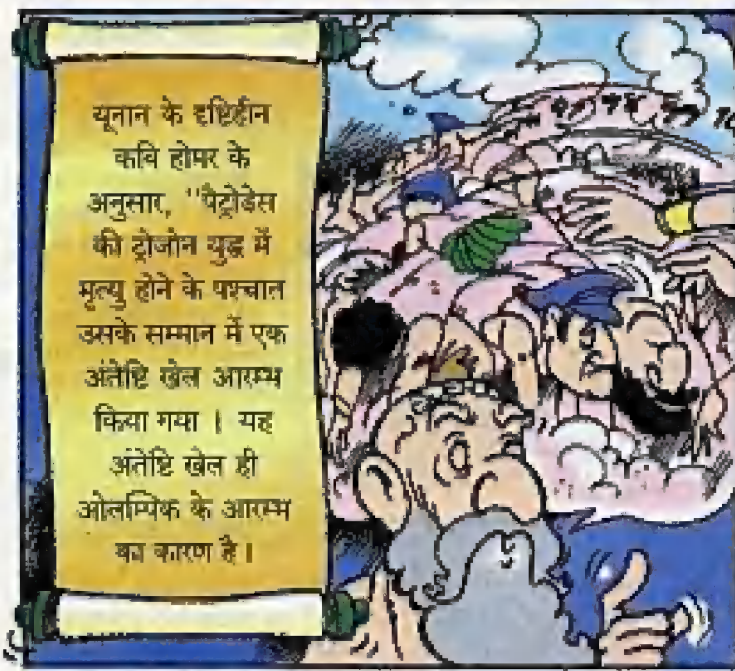 यूनान के दृष्टिहीन
कवि होमर के
अनुसार, "पैट्रोडेस
की ट्रोजोन युद्ध में
मृत्यु होने के पश्चात
उसके सम्मान में एक
अंतेष्टि खेल आरम्भ
किया गया । यह
अंतेष्टि खेल ही
ओलम्पिक के आरम्भ
का कारण है।